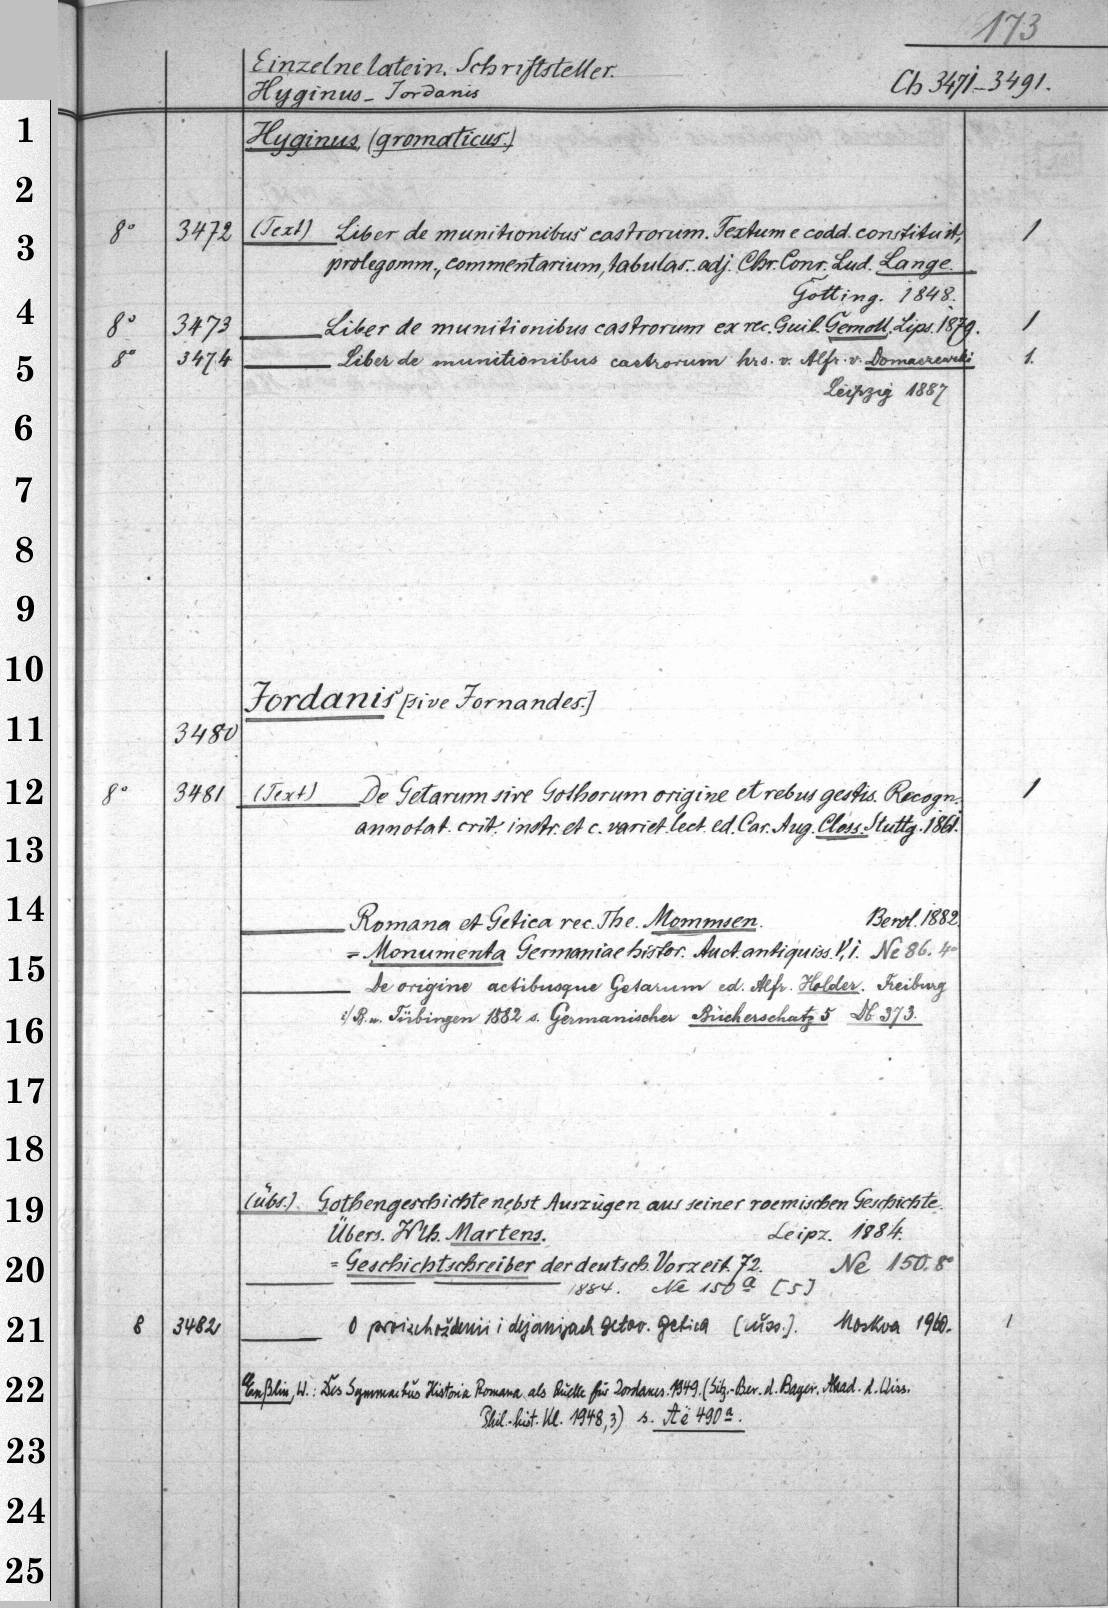 173
Einzelne latein. Schriftsteller.
Hyginus - Jordanis
Ch 3471-3491.
1
Hyginus (gromaticus.)
2
3
8° 3472 (Text) Liber de munitionibus castrorum. Textum e codd. constituit,
1
prolegomm., commentarium, tabulas. adj. Chr. Conr. Lud. Lange.
Götting. 1848.
4
8° 3473 Liber de munitionibus castrorum ex rec. Guil. Gemoll. Lips. 1879.
1
5
8° 3474 Liber de munitionibus castrorum hrs. v. Alfr. v. Domaszewski
1.
Leipzig 1887
6
7
8
9
10
Jordanis [sive Jornandes.]
11
3480
12
8° 3481 (Text) De Getarum sive Gothorum origine et rebus gestis. Recogn.
1
annotat. crit. instr. et c. variet. lect. ed. Car. Aug. Closs. Stuttg. 1861.
13
14
Romana et Getica rec. The. Mommsen. Berol. 1882
= Monumenta Germaniae histor. Auct. antiquiss. V, 1. Ne 86. 4°
15
De origine actibusque Getarum ed. Alfr. Holder. Freiburg
16
i/B. u. Tübingen 1882 s. Germanischer Bücherschatz 5 Db 373.
17
18
19
(übs.) Gothengeschichte nebst Auszügen aus seiner roemischen Geschichte.
Übers. Wlh. Martens. Leipz. 1884.
20
= Geschichtschreiber der deutsch. Vorzeit. 72. Ne 150. 8°
1884. Ne 150 a [5]
21
8 3482 O proischoždenii i dejanijach getov. Getica [russ.]. Moskva 1960.
1
22
Enßlin, W.: Des Symmachus Historia Romana als Quelle für Jordanes. 1949. (Sitz.-Ber. d. Bayer. Akad. d. Wiss.
Phil.-hist. Kl. 1948, 3) s. Aë 490 a.
23
24
25